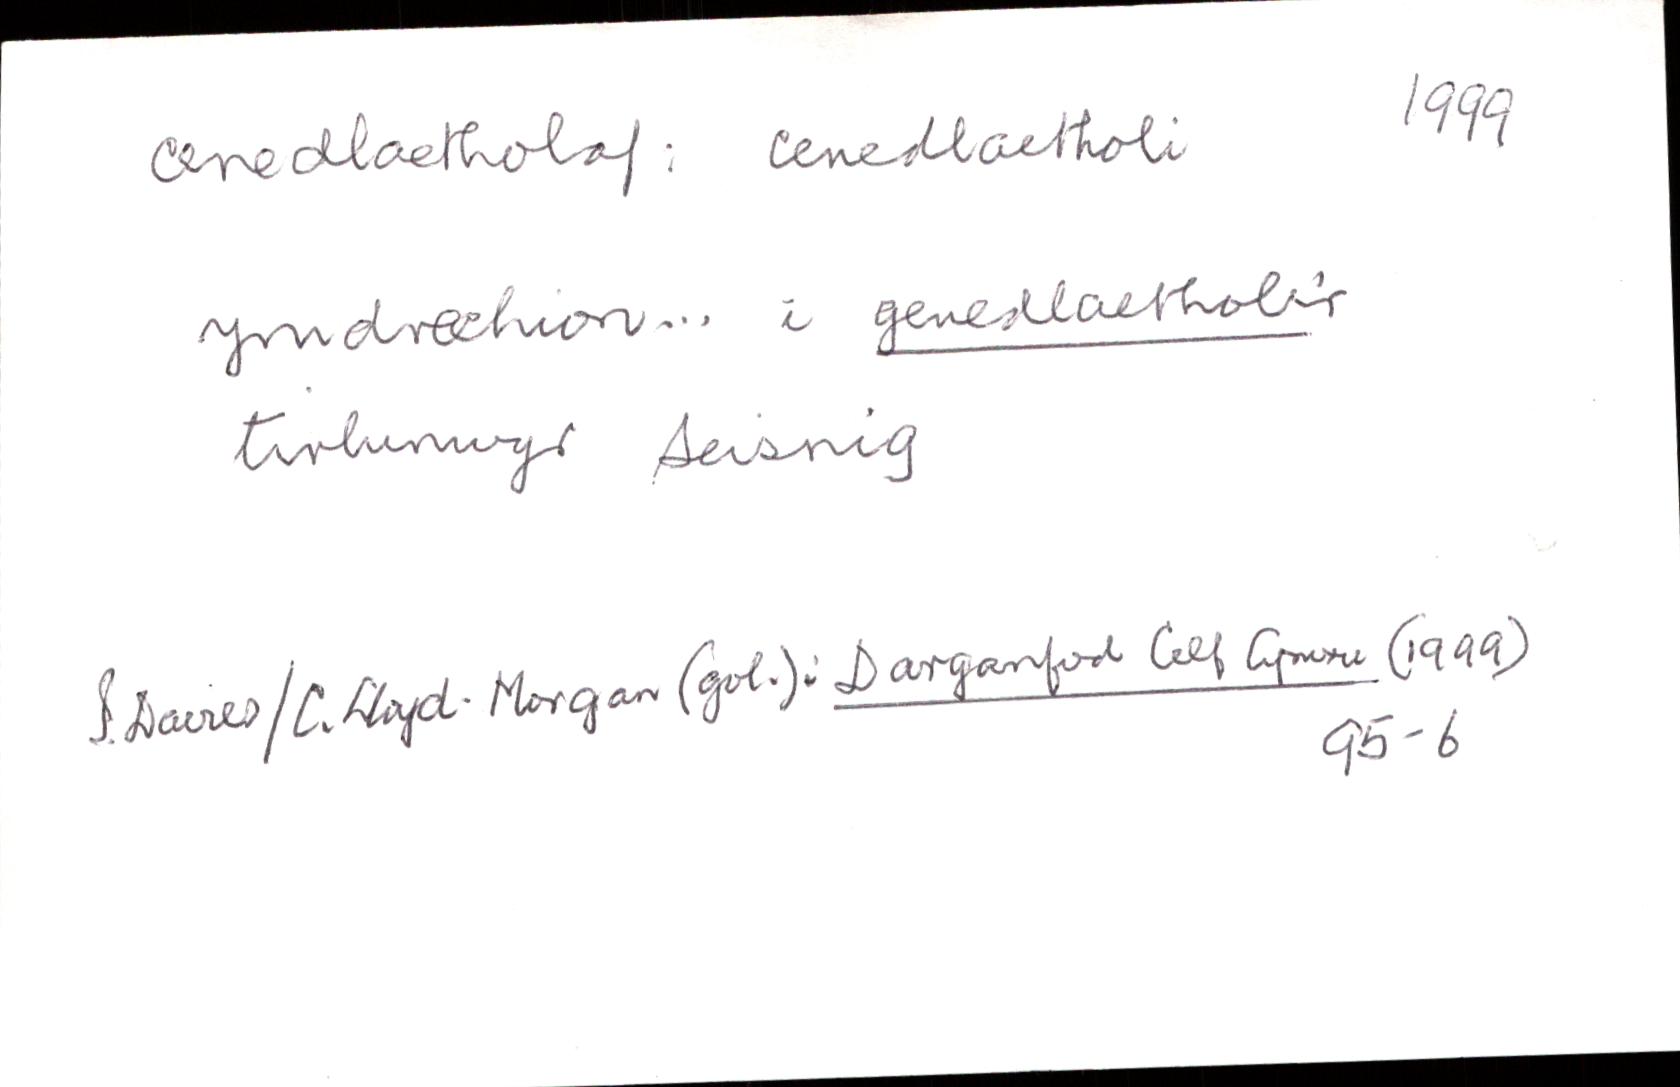 cenedlaetholaf: cenedlaetholi 1999
ymdrechion... i genedlaetholi'r
tirlunwyr Seisnig
I. Davies/C. Lloyd-Morgan (gol.): Darganfod Celf Cymru (1999)
95-6